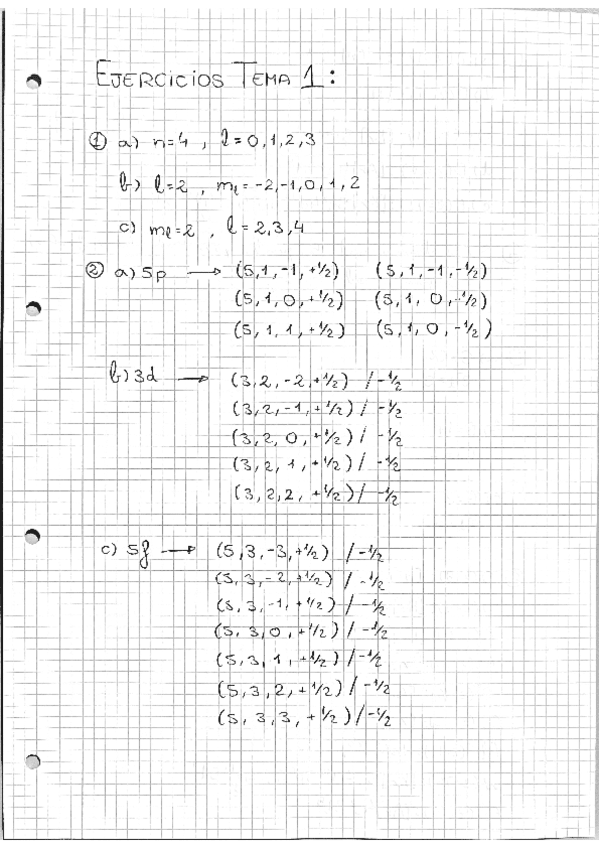 EJERCICIOS TEMA 1:
① a) n=4 , l=0,1,2,3
b) l=2 , ml=-2,-1,0,1,2
c) ml=2 , l=2,3,4
② a) 5p → (5,1,-1,+1/2) (5,1,-1,-1/2)
(5,1,0,+1/2) (5,1,0,-1/2)
(5,1,1,+1/2) (5,1,0,-1/2)
b) 3d → (3,2,-2,+1/2) /-1/2
(3,2,-1,+1/2)/ -1/2
(3,2,0,+1/2)/ -1/2
(3,2,1,+1/2)/ -1/2
(3,2,2,+1/2)/ -1/2
c) 5f → (5,3,-3,+1/2) /-1/2
(5,3,-2,+1/2) /-1/2
(5,3,-1,+1/2)/ -1/2
(5,3,0,+1/2)/ -1/2
(5,3,1,+1/2)/ -1/2
(5,3,2,+1/2)/ -1/2
(5,3,3,+1/2)/ -1/2